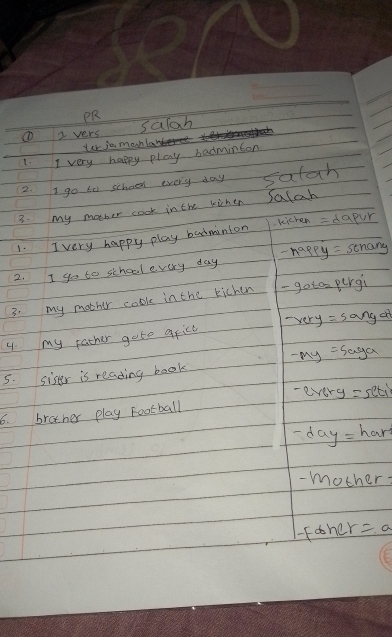 PR
① 2 vers Salah
terjemahla
1. I very happy play badminton
2. I go to school every day Salah
3. my mother cook in the kichen Salah
1. I very happy play badminton
2. I go to school every day
3. my mother cook in the kichen
4. my father goto ofice
5. sister is reading book
6. brother play Football
kichen = dapur
- happy = senang
- goto = pergi
- very = sangat
- my = saya
- every = seti
- day = hari
- mother =
- father = a